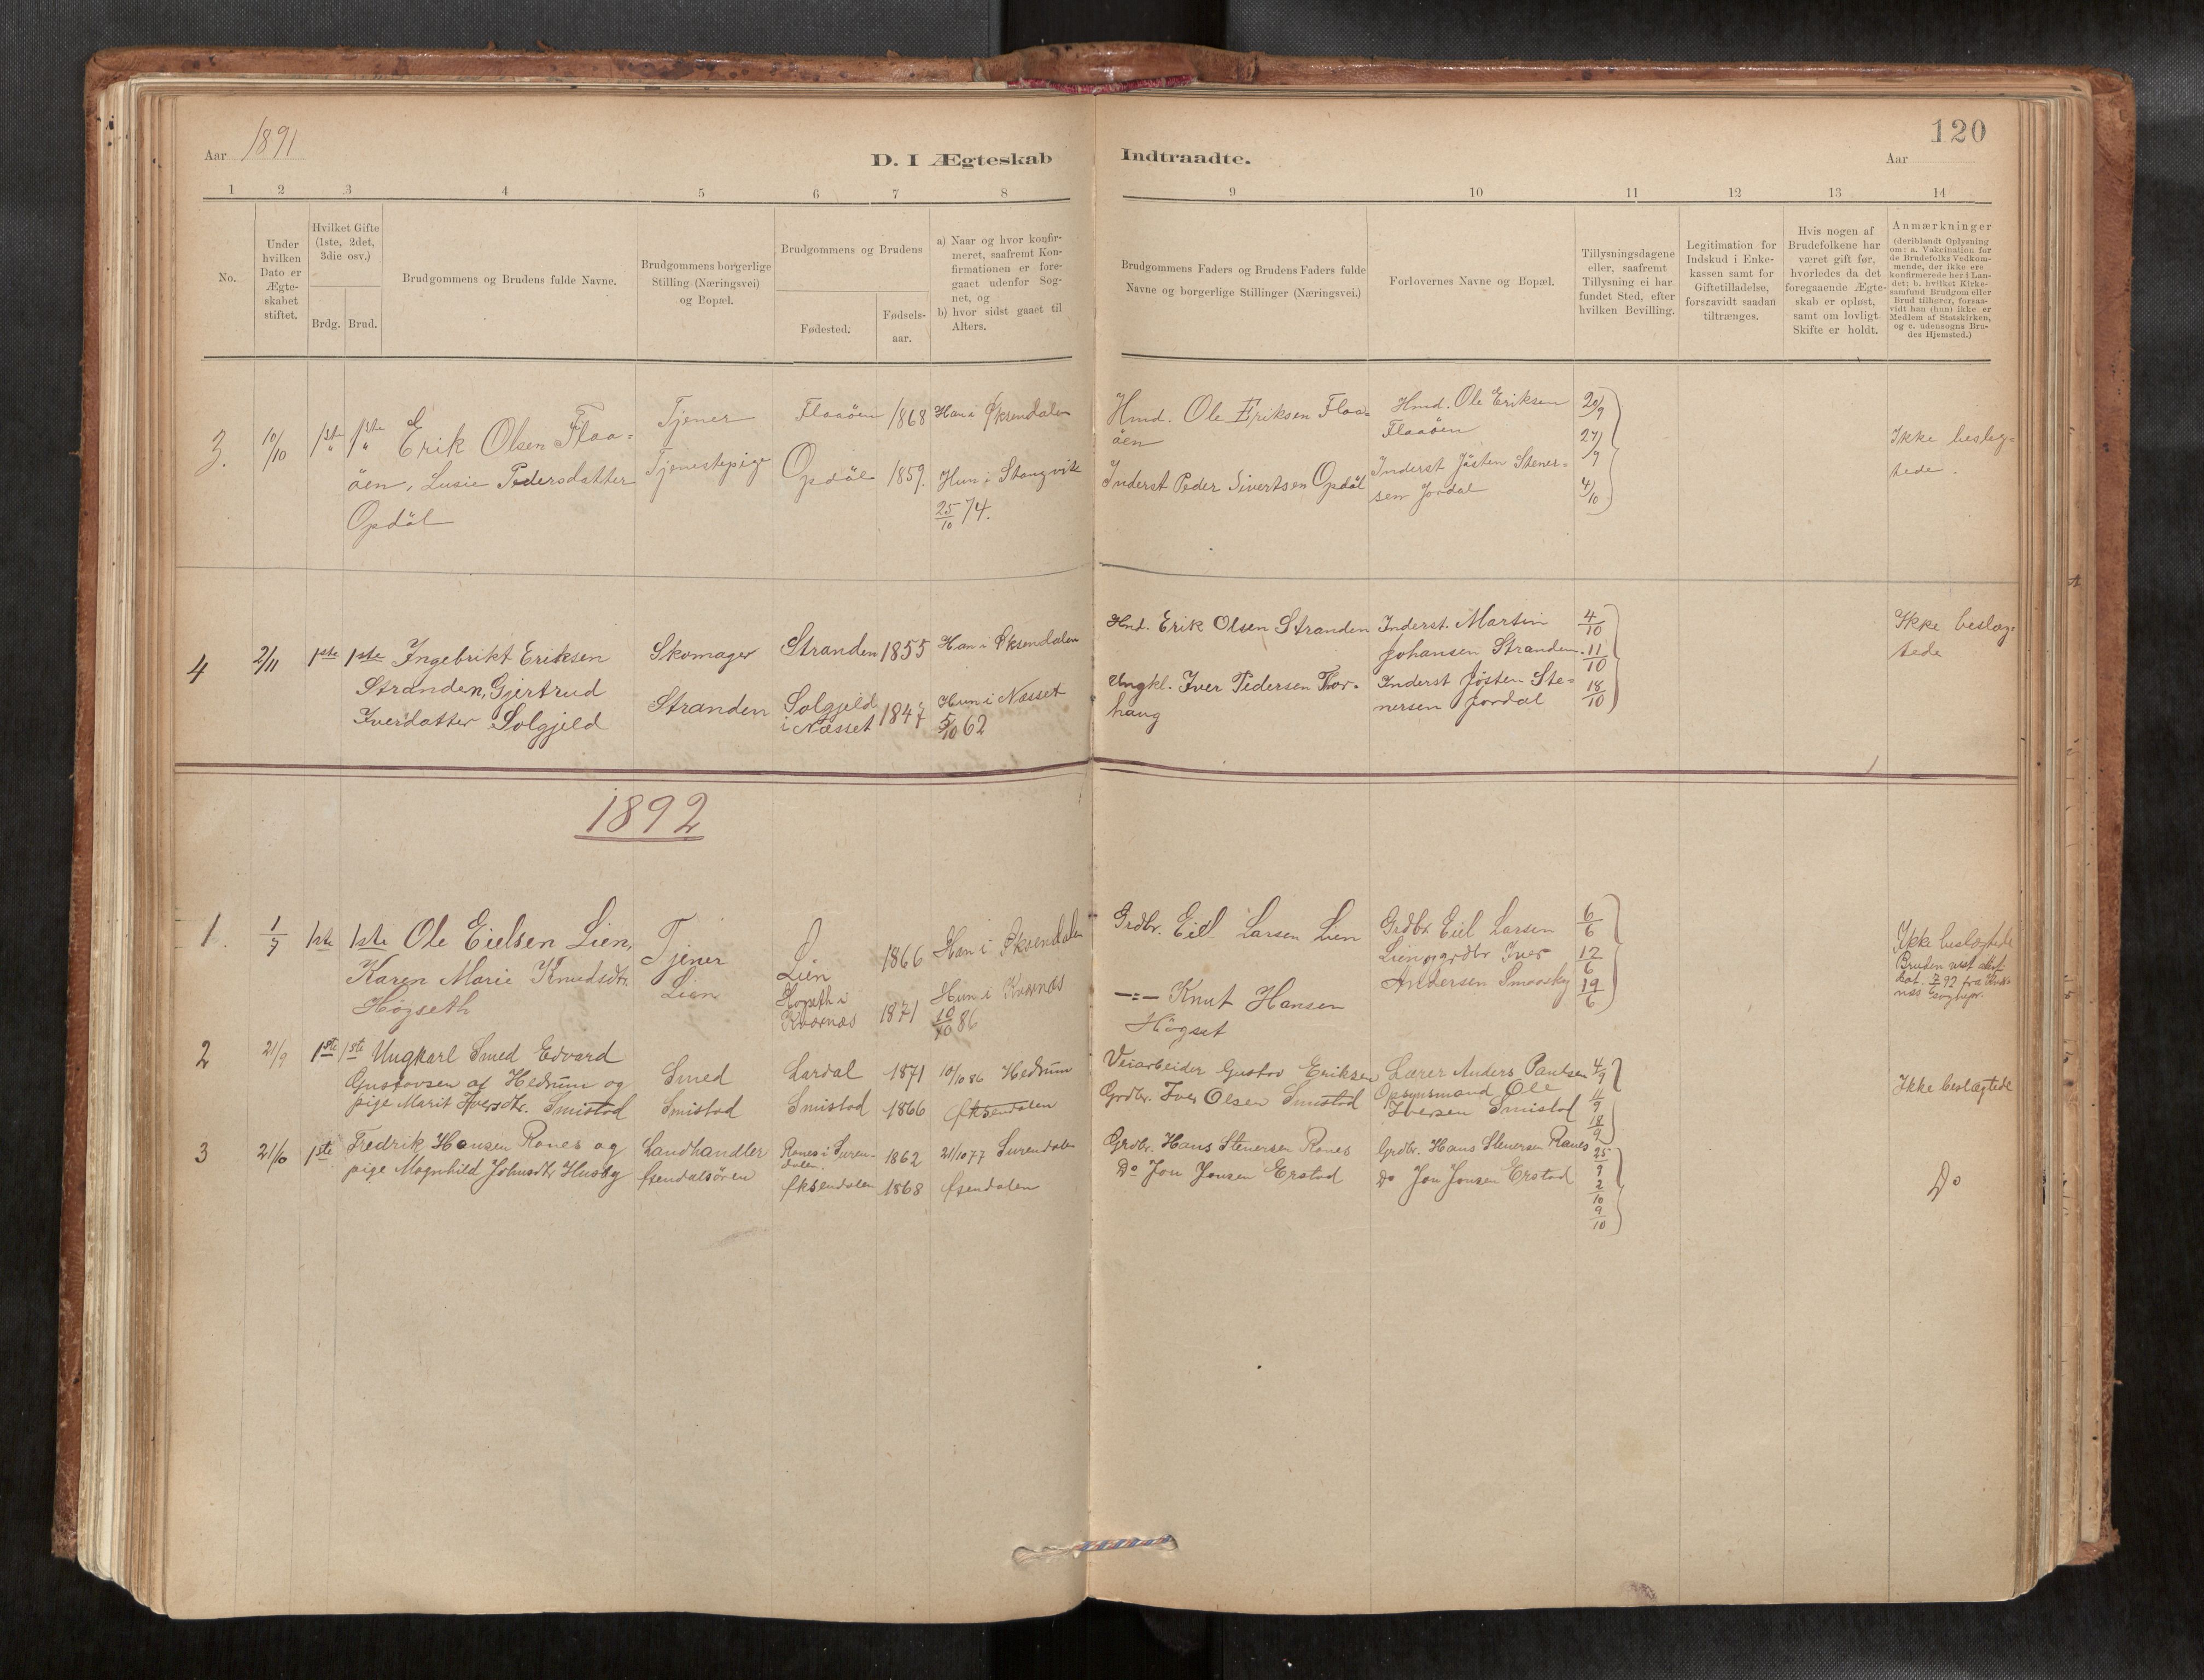 120
Aar 1891
D. I Ægteskab
Indtraadte.
Aar
1 2 3 4 5 6 7 8
9 10 11 12 13 14
No.
Under
hvilken
Dato er
Ægte-
skabet
stiftet.
Hvilket Gifte
(1ste, 2det,
3die osv.)
Brdg. Brud.
Brudgommens og Brudens fulde Navne.
Brudgommens borgerlige
Stilling (Næringsvei)
og Bopæl.
Brudgommens og Brudens
Fødested.
Fødsels-
aar.
a) Naar og hvor konfir-
meret, saafremt Kon-
firmationen er fore-
gaaet udenfor Sog-
net, og
b) hvor sidst gaaet til
Alters.
Brudgommens Faders og Brudens Faders fulde
Navne og borgerlige Stillinger (Næringsvei.)
Forlovernes Navne og Bopæl.
Tillysningsdagene
eller, saafremt
Tillysning ei har
fundet Sted, efter
hvilken Bevilling.
Legitimation for
Indskud i Enke-
kassen samt for
Giftetilladelse,
forsravidt saadan
tiltrænges.
Hvis nogen af
Brudefolkene har
været gift før,
hvorledes da det
foregaaende Ægte-
skab er opløst,
samt om lovligt
Skifte er holdt.
Anmærkninger
(deriblandt Oplysning
om: a. Vakcination for
de Brudefolks Vedkom-
mende, der ikke ere
konfirmerede her i Lan-
det; b. hvilket Kirke-
samfund Brudgom eller
Brud tilhører, forsaa-
vidt han (hun) ikke er
Medlem af Statskirken,
og c. udensogns Bru-
des Hjemsted.)
3. 10/10 1ste 1ste Erik Olsen Flaa=
" "
öen, Lusie Pedersdatter
Opdöl
Tjener
Tjenestepige
Flaaöen 1868 Han i Øksendalen
Opdöl 1859. Hun i Stangvik
25/10 74.
Hmd. Ole Eriksen Flaa=
öen
Inderst Peder Sivertsen Opdöl
Hmd. Ole Eriksen
Flaaöen
Inderst Jösten Stener=
sen Jordal
20/9
27/9
4/10
Ikke beslæg=
tede.
4 2/11 1ste 1ste Ingebrikt Eriksen
Stranden, Gjertrud
Iverdatter Solgjeld
Skomager
Stranden
Stranden 1855 Han i Øksendalen
Solgjeld
i Næsset 1847 Hun i Næsset
5/10 62
Hmd. Erik Olsen Stranden
Ungkl. Iver Pedersen Tor-
haug
Inderst. Martin
Johansen Stranden.
Inderst Jøsten Ste=
nersen Jordal
4/10
11/10
18/10
Ikke beslæg=
tede
1892
1. 1/7 1ste 1ste Ole Eielsen Lien,
Karen Marie Knudsdtr.
Høgseth
Tjener
Lien
Lien 1866 Han i Øksendalen
Hogseth i
Kvernæs 1871 Hun i Kvernæs
10/10 86
Grdbr. Eiel Larsen Lien
-:- Knut Hansen
Högset
Grdbr. Eiel Larsen
Lien og grdbr Iver
Andersen Smaaskg
6/6
12/6
19/6
Ikke beslægtede
2 21/9 1ste 1ste Ungkarl Smed Edvard
Gustavsen af Hedrum og
pige Marit Iversdtr. Smistad
Smed
Smistad
Lardal 1871 10/10 86 Hedrum
Smistad 1866 Øksendalen
Veiarbeider Gustav Eriksen
Grdbr. Iver Olsen Smistad
Lærer Anders Paulsen
Opsynsmand Ole
Iversen Smistad
4/9
11/9
18/9
Ikke beslægtede
3 21/10 1ste Fredrik Hansen Ranes og
pige Magnhild Johnsdtr. Husby
Landhandler
Øxendalsøren
Ranes i Suren-
dalen. 1862 21/10 77 Surendalen
Øksendalen 1868 Øxendalen
Grdbr. Hans Stenersen Ranes
Do Jon Jonsen Erstad
Grdbr. Hans Stenersen Ranes
Do Jon Jonsen Erstad
25/9
2/10
9/10
Do